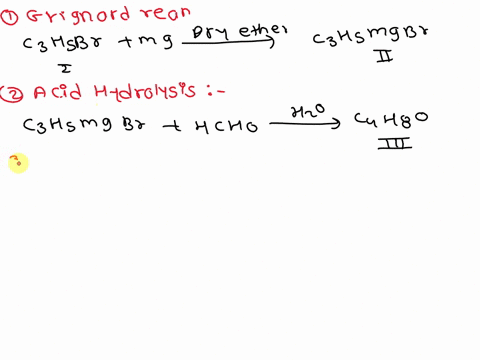 ① Grignord rean
C3H5Br + mg Dry ether → C3H5mgBr
I II
② Acid Hydrolysis :-
C3H5mgBr + HCHO H2O → C4H8O
III
3